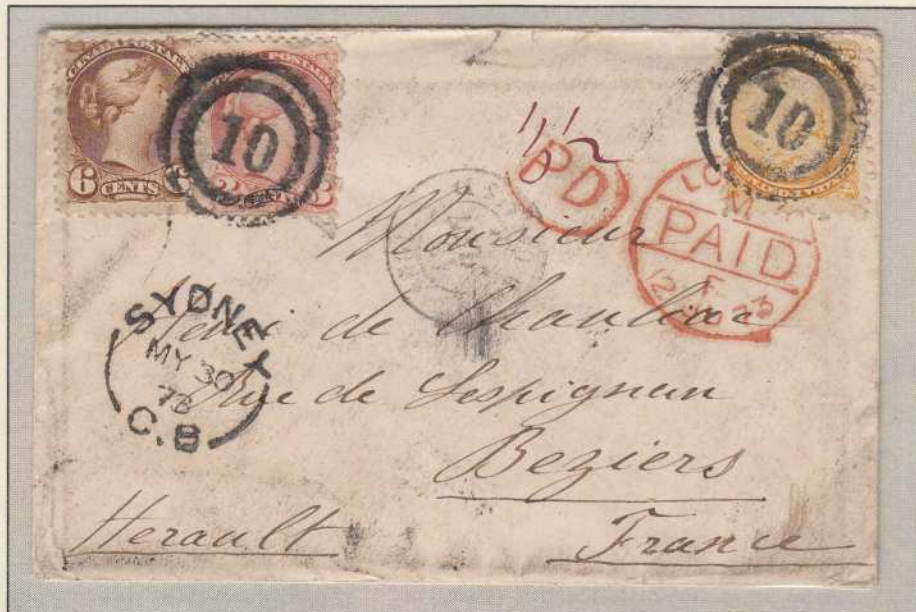 CANADA POSTAGE
6 CENTS 6
POSTAGE
3 3
10
10
1 1/2
PD
PAID
12 73
SYDNEY
MY 30
73
C.B
Monsieur
de
Rue de Lespignan
Beziers
Herault
France